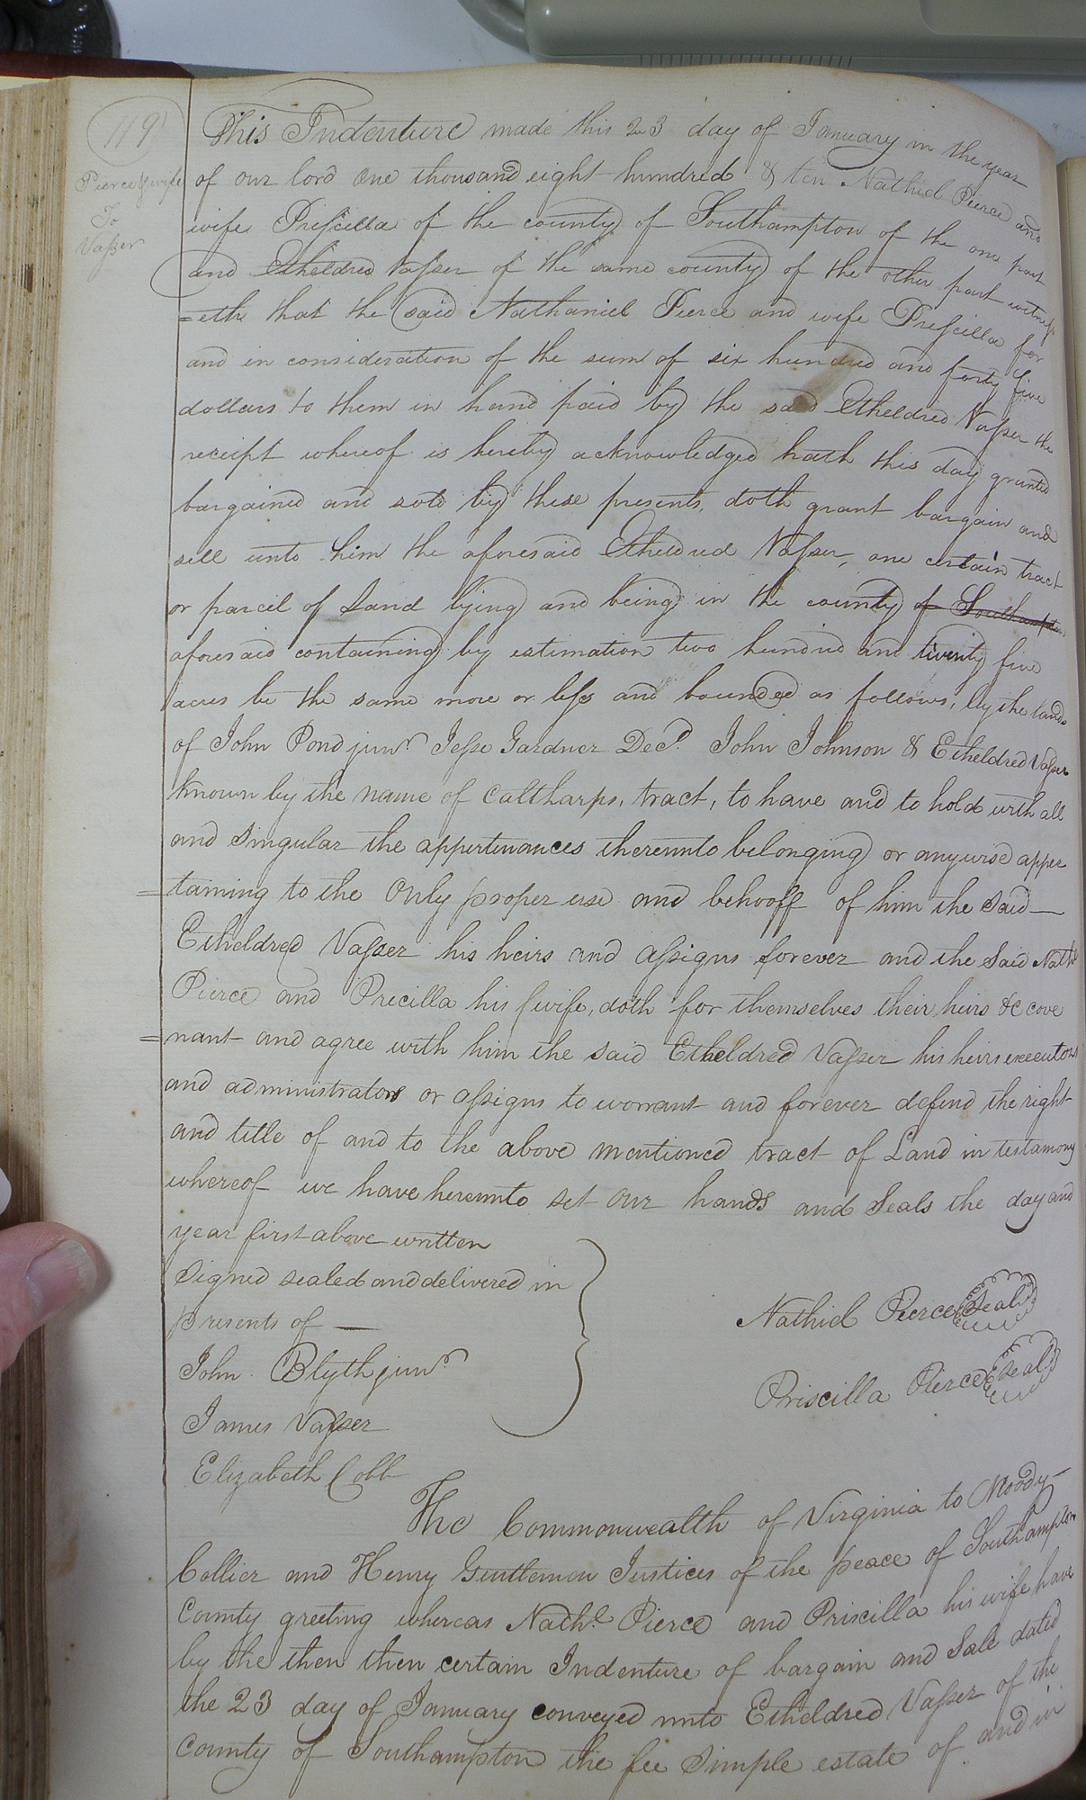 119
Pierce & wife
To
Vasser
This Indenture made this 23 day of January in the year
of our lord one thousand eight hundred & ten Nathiel Pierce and
wife Priscilla of the county of Southampton of the one part
and Etheldred Vasser of the same county of the other part witness
=eth that the said Nathaniel Pierce and wife Priscilla for
and in consideration of the sum of six hundred and forty five
dollars to them in hand paid by the said Etheldred Vasser the
receipt whereof is hereby acknowledged hath this day granted
bargained and sold by these presents, doth grant bargain and
sell unto him the aforesaid Etheldred Vasser, one certain tract
or parcel of Land lying and being in the county of Southampton
aforesaid containing by estimation two hundred and twenty five
acres be the same more or less and bounded as follows, by the lands
of John Pond junr. Jesse Gardner Decd. John Johnson & Etheldred Vasser
known by the name of Caltharps, tract, to have and to hold with all
and Singular the appertenances thereunto belonging or anywise apper
=taining to the Only proper use and behooff of him the Said—
Etheldred Vasser his heirs and assigns forever and the Said Nathl
Pierce and Precilla his wife, doth for themselves their heirs &c cove
=nant and agree with him the said Etheldred Vasser his heirs executors
and administrators or assigns to worrant and forever defend the right
and title of and to the above mentioned tract of Land in testamony
whereof we have hereunto set our hands and Seals the day and
year first above written
Signed sealed and delivered in
presents of —
John Blyth junr
James Vasser
Elizabeth Cobb
Nathiel Pierce Seal
Priscilla Pierce Seal
The Commonwealth of Virginia to Moody
Collier and Henry Gentlemen Justices of the peace of Southampton
County greeting whereas Nathl. Pierce and Priscilla his wife have
by the then then certain Indenture of bargain and Sale dated
the 23 day of January conveyed unto Etheldred Vasser of the
County of Southampton the fee Simple estate of and in